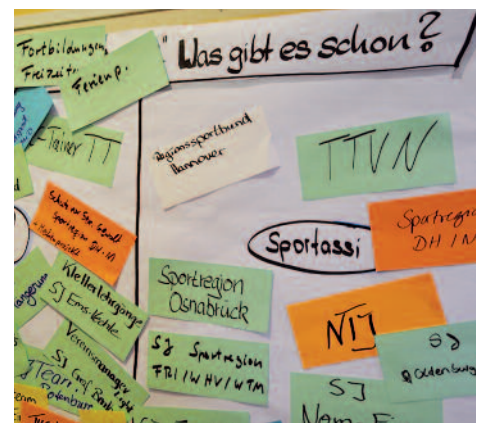 Fortbildungen,
Freizeit
Ferienp.
Was gibt es schon?
C-Trainer TT
Regionssportbund
Hannover
TTVN
Sportregion
DH/N
Sportassi
Schutz vor Sex. Gewalt
Sportregion DH-NI
Kletterlehrgänge
SJ Ems-Vechte
Sportregion
Osnabrück
NTJ
Vereinsmanager
SJ Graf. Bentheim
SJ Sportregion
FRI/WHV/WTM
SJ
Oldenburg
JTeam
Oldenburg
SJ
Nom-Ei